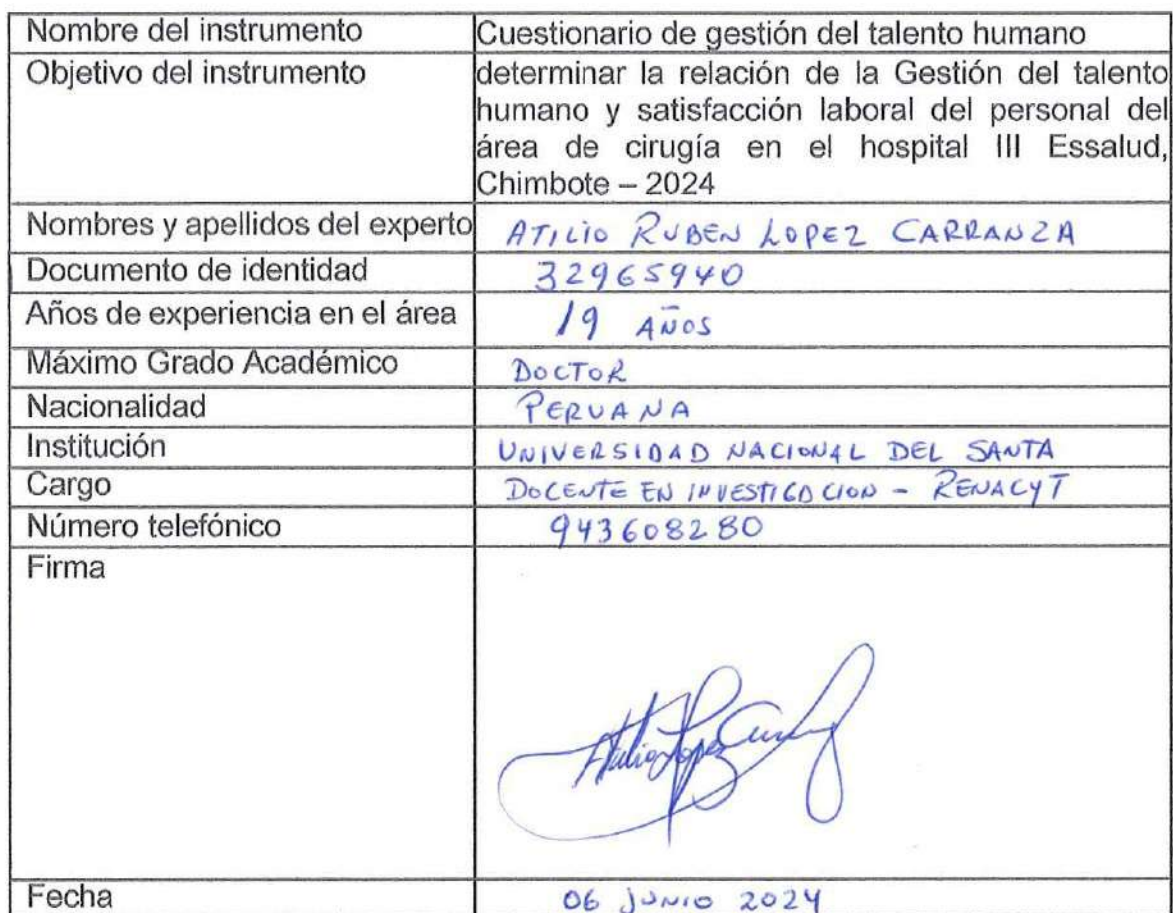 Nombre del instrumento
Cuestionario de gestión del talento humano
Objetivo del instrumento
determinar la relación de la Gestión del talento
humano y satisfacción laboral del personal del
área de cirugía en el hospital III Essalud,
Chimbote – 2024
Nombres y apellidos del experto
ATILIO RUBEN LOPEZ CARRANZA
Documento de identidad
32965940
Años de experiencia en el área
19 AÑOS
Máximo Grado Académico
DOCTOR
Nacionalidad
PERUANA
Institución
UNIVERSIDAD NACIONAL DEL SANTA
Cargo
DOCENTE EN INVESTIGACION - RENACYT
Número telefónico
943608280
Firma
Fecha
06 JUNIO 2024